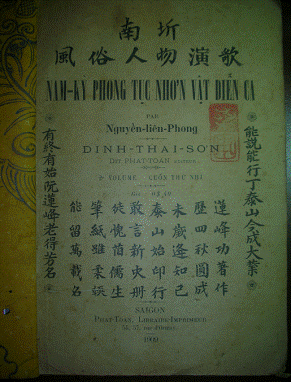 南圻
風俗人物演歌
NAM-KỲ PHONG TỤC NHƠN VẬT DIỄN CA
PAR
Nguyễn-liên-Phong
ĐINH-THÁI-SƠN
DIT PHAT-TOÁN ÉDITEUR
2e VOLUME. — CUỐN THỨ NHÌ
Giá: 0$40
能説能行丁泰山今成大業
蓮峰功著作
歷四秋圓成
未歲逢知己
泰山始印行
敢言新史册
儒生
筆紙雖柔
能留萬載名
有終有始阮蓮峰老得芳名
SAIGON
PHAT-TOAN, LIBRAIRE-IMPRIMEUR
55, 57, rue d'Ormay
1909